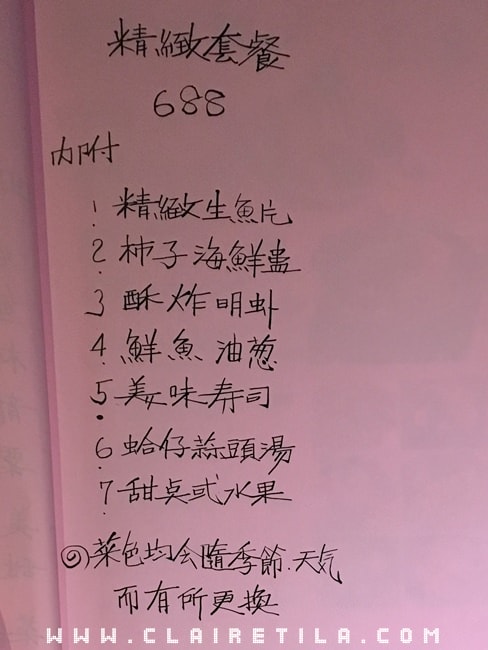 精緻套餐
688
内附
1 精緻生魚片
2 柿子海鮮盅
3 酥炸明虾
4 鮮魚油葱
5 美味寿司
6 蛤仔蒜頭湯
7 甜点或水果
菜色均会隨季節.天気
而有所更換
WWW.CLAIRETILA.COM